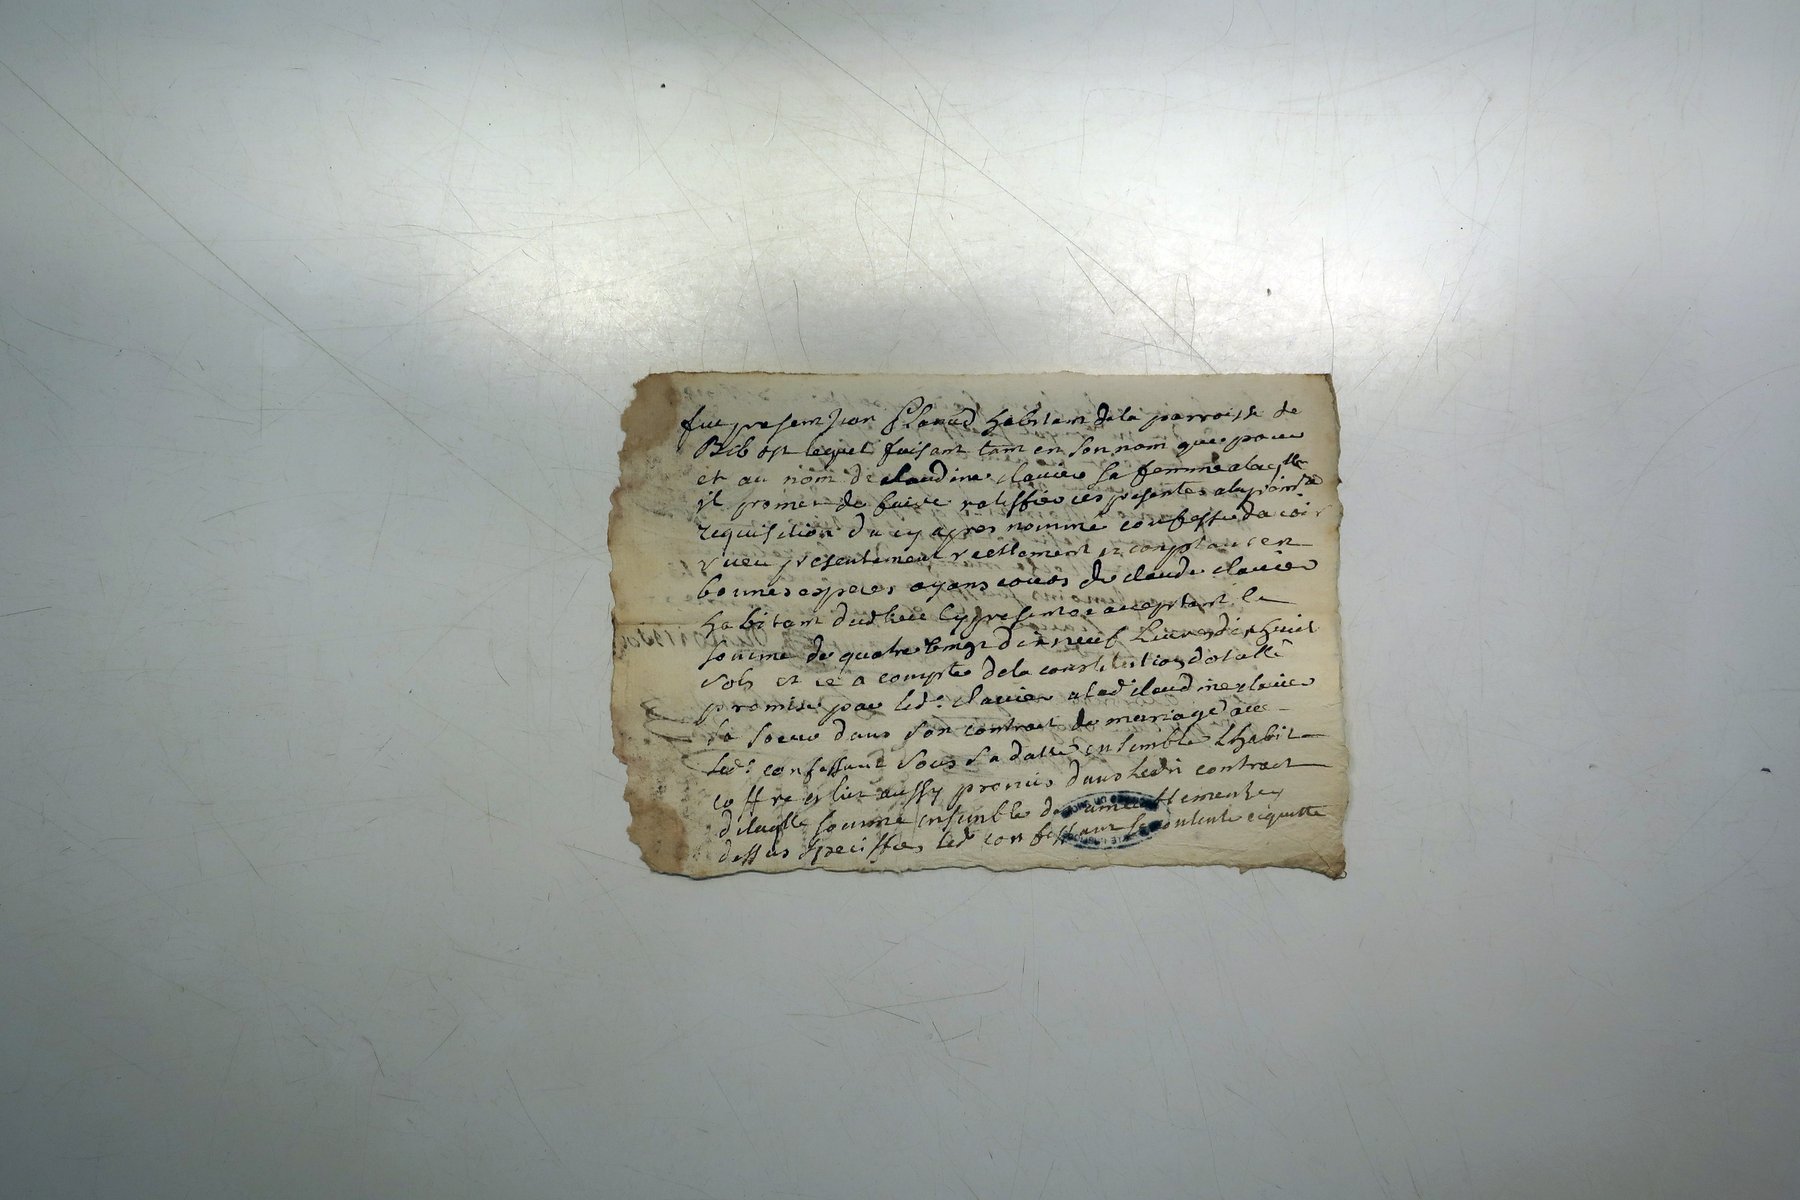 fut present Jean Planud habitant de la parroisse de
Ribost lequel faisant tant en son nom que pour
et au nom de claudine clavier sa femme a laqlle
il promet de faire ratiffier ces presentes a la pre
requisition du cy apres nommé confesse davoir
receu presentement reellement et comptant en
bonnes especes ayans cours de claude clavier
habitant dudt lieu cy present et acceptant la
somme de quatre vingt dix neuf livres dix huict
sols et ce a compte de la constitution dotalle
promise par led. clavier a lad claudine clavier
sa soeur dans son contract de mariage avec
led. confessant sous sa datte ensemble lhabit
coffre et lict aussy promis dans ledit contract
de laqlle somme ensemble des
dessus speciffies led confessant se contente et quitte